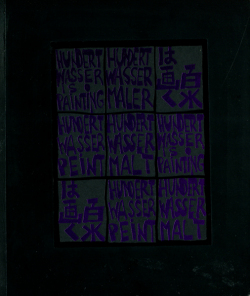 HUNDERT
WASSER
IS
PAINTING
HUNDERT
WASSER
MALER
百水
は画く
HUNDERT
WASSER
PEINT
HUNDERT
WASSER
MALT
HUNDERT
WASSER
IS
PAINTING
百水
は画く
HUNDERT
WASSER
PEINT
HUNDERT
WASSER
MALT